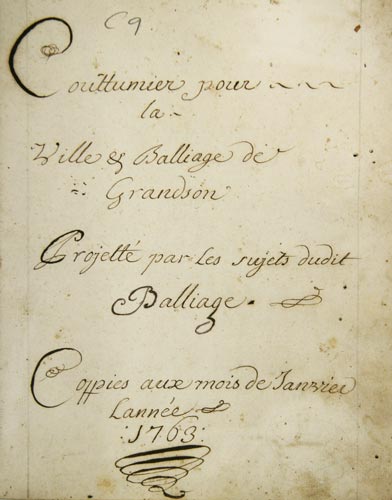 C9
Couttumier pour
la
Ville & Balliage de
Grandson
Projetté par les sujets dudit
Balliage.
Coppies aux mois de Janvier
Lannée
1763